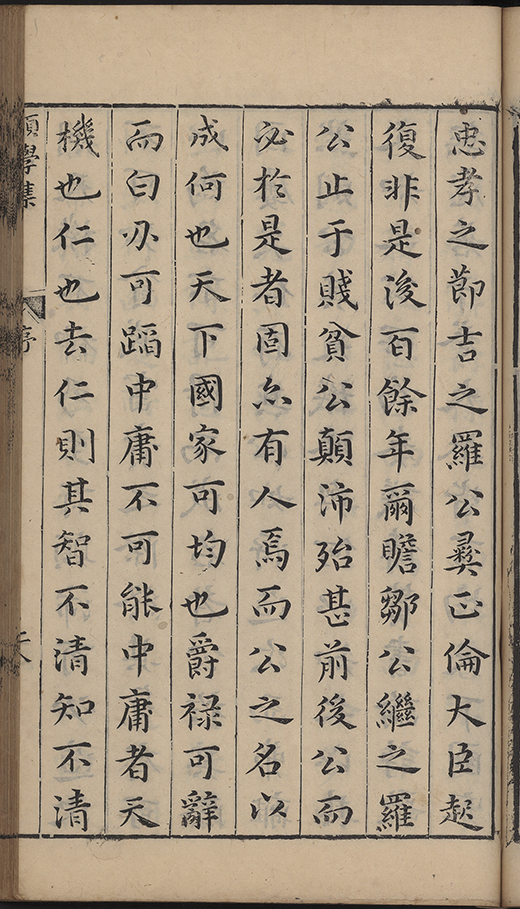 忠孝之節吉之羅公彛正倫大臣起
復非是後百餘年爾瞻鄒公繼之羅
公止于賤貧公顛沛殆甚前後公而
必於是者固亦有人焉而公之名以
成何也天下國家可均也爵祿可辭
而白刃可蹈中庸不可能中庸者天
機也仁也去仁則其智不清知不清
願學集
序
六